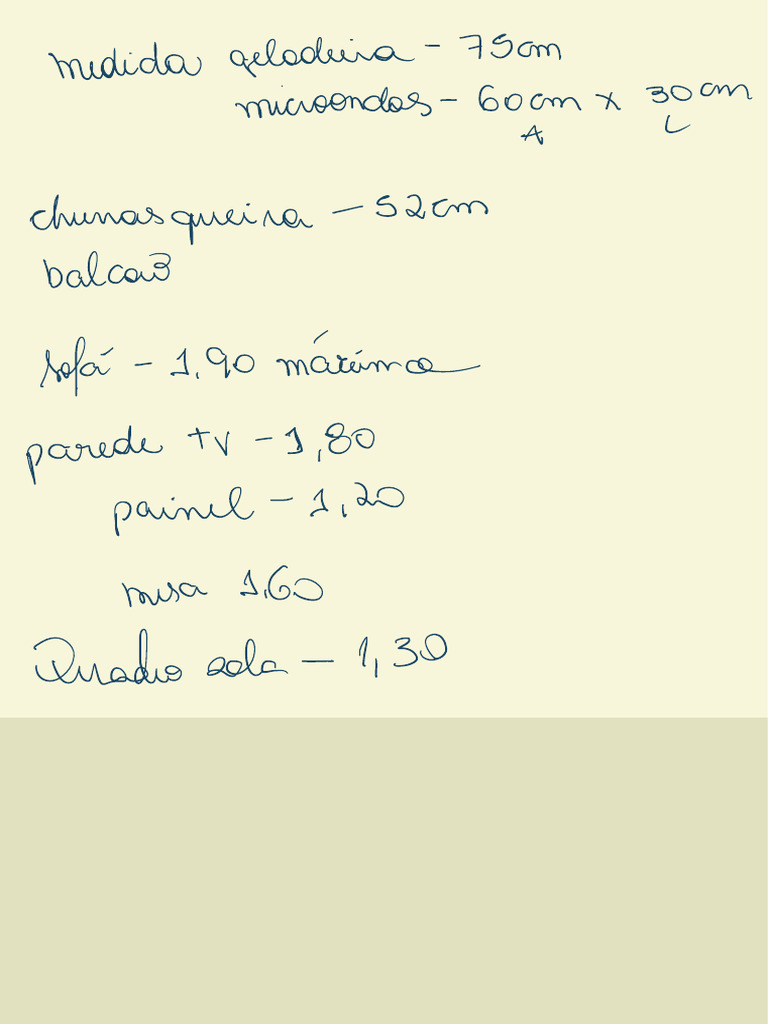 medida geladeira - 75cm
microondas - 60cm x 30cm
A L
churrasqueira - 52cm
balcão
sofá - 1,90 máximo
parede tv - 1,80
painel - 1,20
mesa 1,60
Quadro sala - 1,30